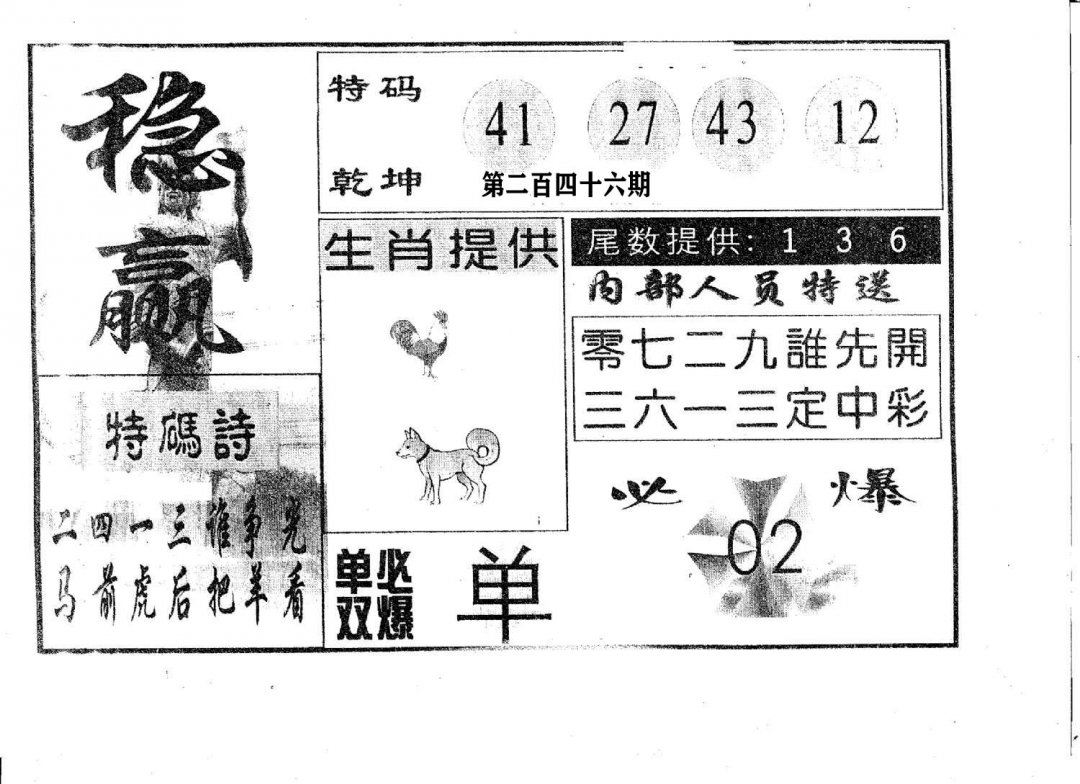 稳
赢
特码 41 27 43 12
乾坤 第二百四十六期
生肖提供
尾数提供: 1 3 6
内部人员特送
零七二九誰先開
三六一三定中彩
特碼詩
二四一三谁争光
马前虎后把羊看
必爆
02
单双
必爆
单